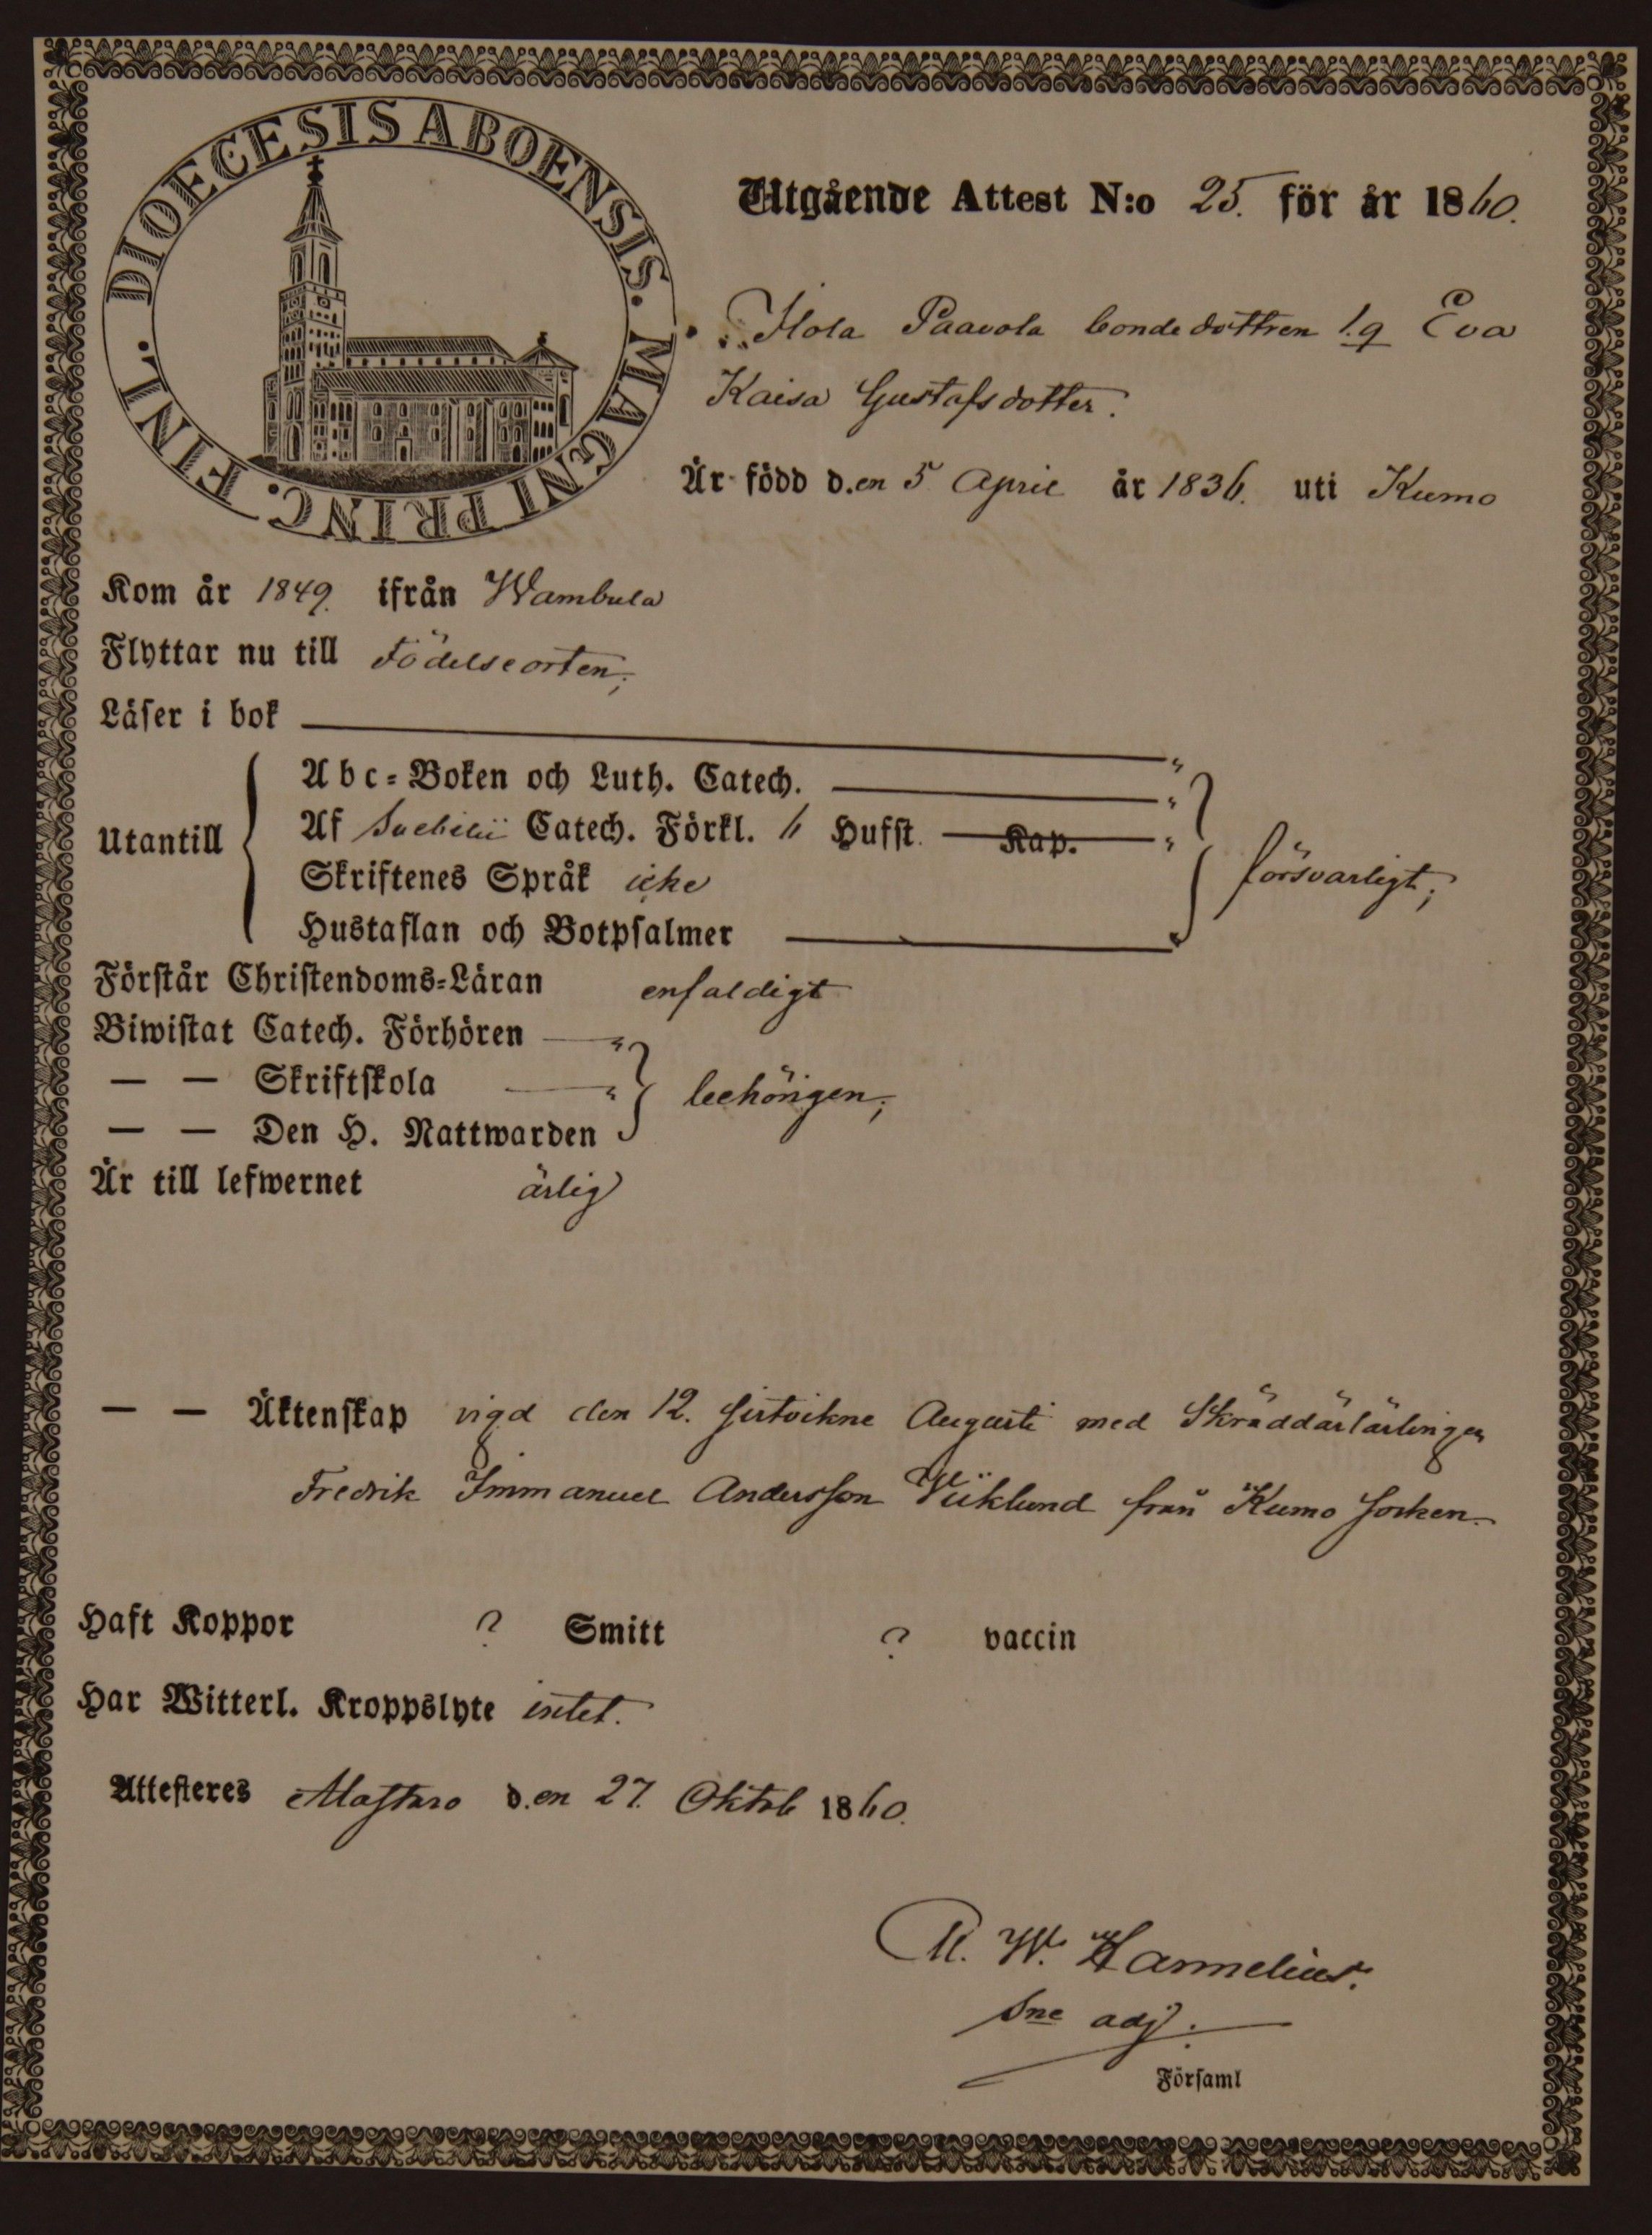 DIOECESIS ABOENSIS. MAGNI PRINC. FINL.
Utgående Attest N:o 25. för år 1860.
Ilola Paavola bondedottren l.q Eva
Kaisa Gustafsdotter.
Är född d.en 5 April år 1836. uti Kumo
Kom år 1849. ifrån Wambula
Flyttar nu till Födelseorten;
Läser i bok
Abc-Boken och Luth. Catech.
Utantill
Af Svebilii Catech. Förkl. 6 Hufst. Kap.
försvarligt;
Skriftenes Språk icke
Hustaflan och Botpsalmer
Förstår Christendoms-Läran enfaldigt
Biwistat Catech. Förhören
— — Skriftskola behörigen;
— — Den H. Nattwarden
Är till lefwernet ärlig
— — Äktenskap vigd den 12. sistvikne Augusti med Skräddärlärlingen
Fredrik Immanuel Andersson Viiklund från Kumo socken.
Haft Koppor ? Smitt ? vaccin
Har Witterl. Kroppslyte intet.
Attesteres Alastaro d.en 27. Oktob 1860.
W. Hammelius.
Sne adj.
Församl